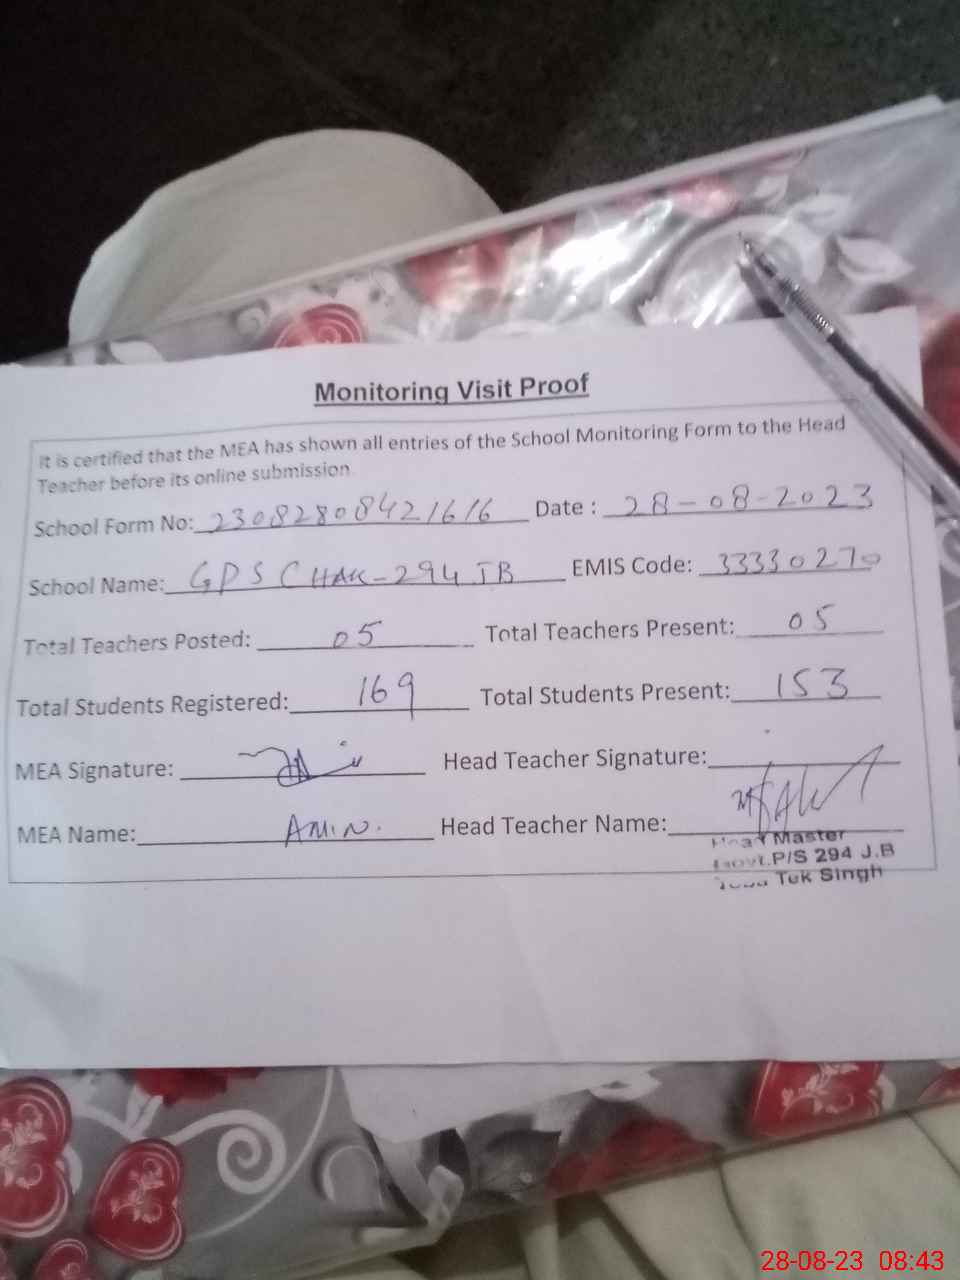 Monitoring Visit Proof
It is certified that the MEA has shown all entries of the School Monitoring Form to the Head
Teacher before its online submission
School Form No: 23082808421616 Date : 28-08-2023
School Name: GPS CHAK-294 JB EMIS Code: 33330270
Total Teachers Posted: 05 Total Teachers Present: 05
Total Students Registered: 169 Total Students Present: 153
MEA Signature: Head Teacher Signature:
MEA Name: AMIN. Head Teacher Name:
Head Master
Govt.P/S 294 J.B
Tek Singh
28-08-23 08:43